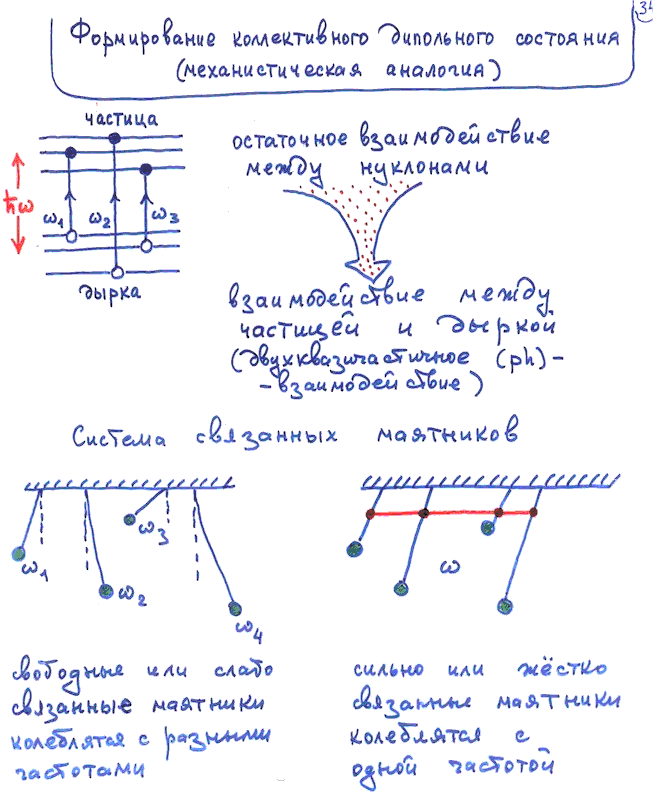 34
Формирование коллективного дипольного состояния
(механистическая аналогия)
частица
ħω
ω1 ω2 ω3
дырка
остаточное взаимодействие
между нуклонами
взаимодействие между
частицей и дыркой
(двухквазичастичное (ph)-
-взаимодействие)
Система связанных маятников
ω1
ω2
ω3
ω4
ω
свободные или слабо
связанные маятники
колеблятся с разными
частотами
сильно или жёстко
связанные маятники
колеблятся с
одной частотой